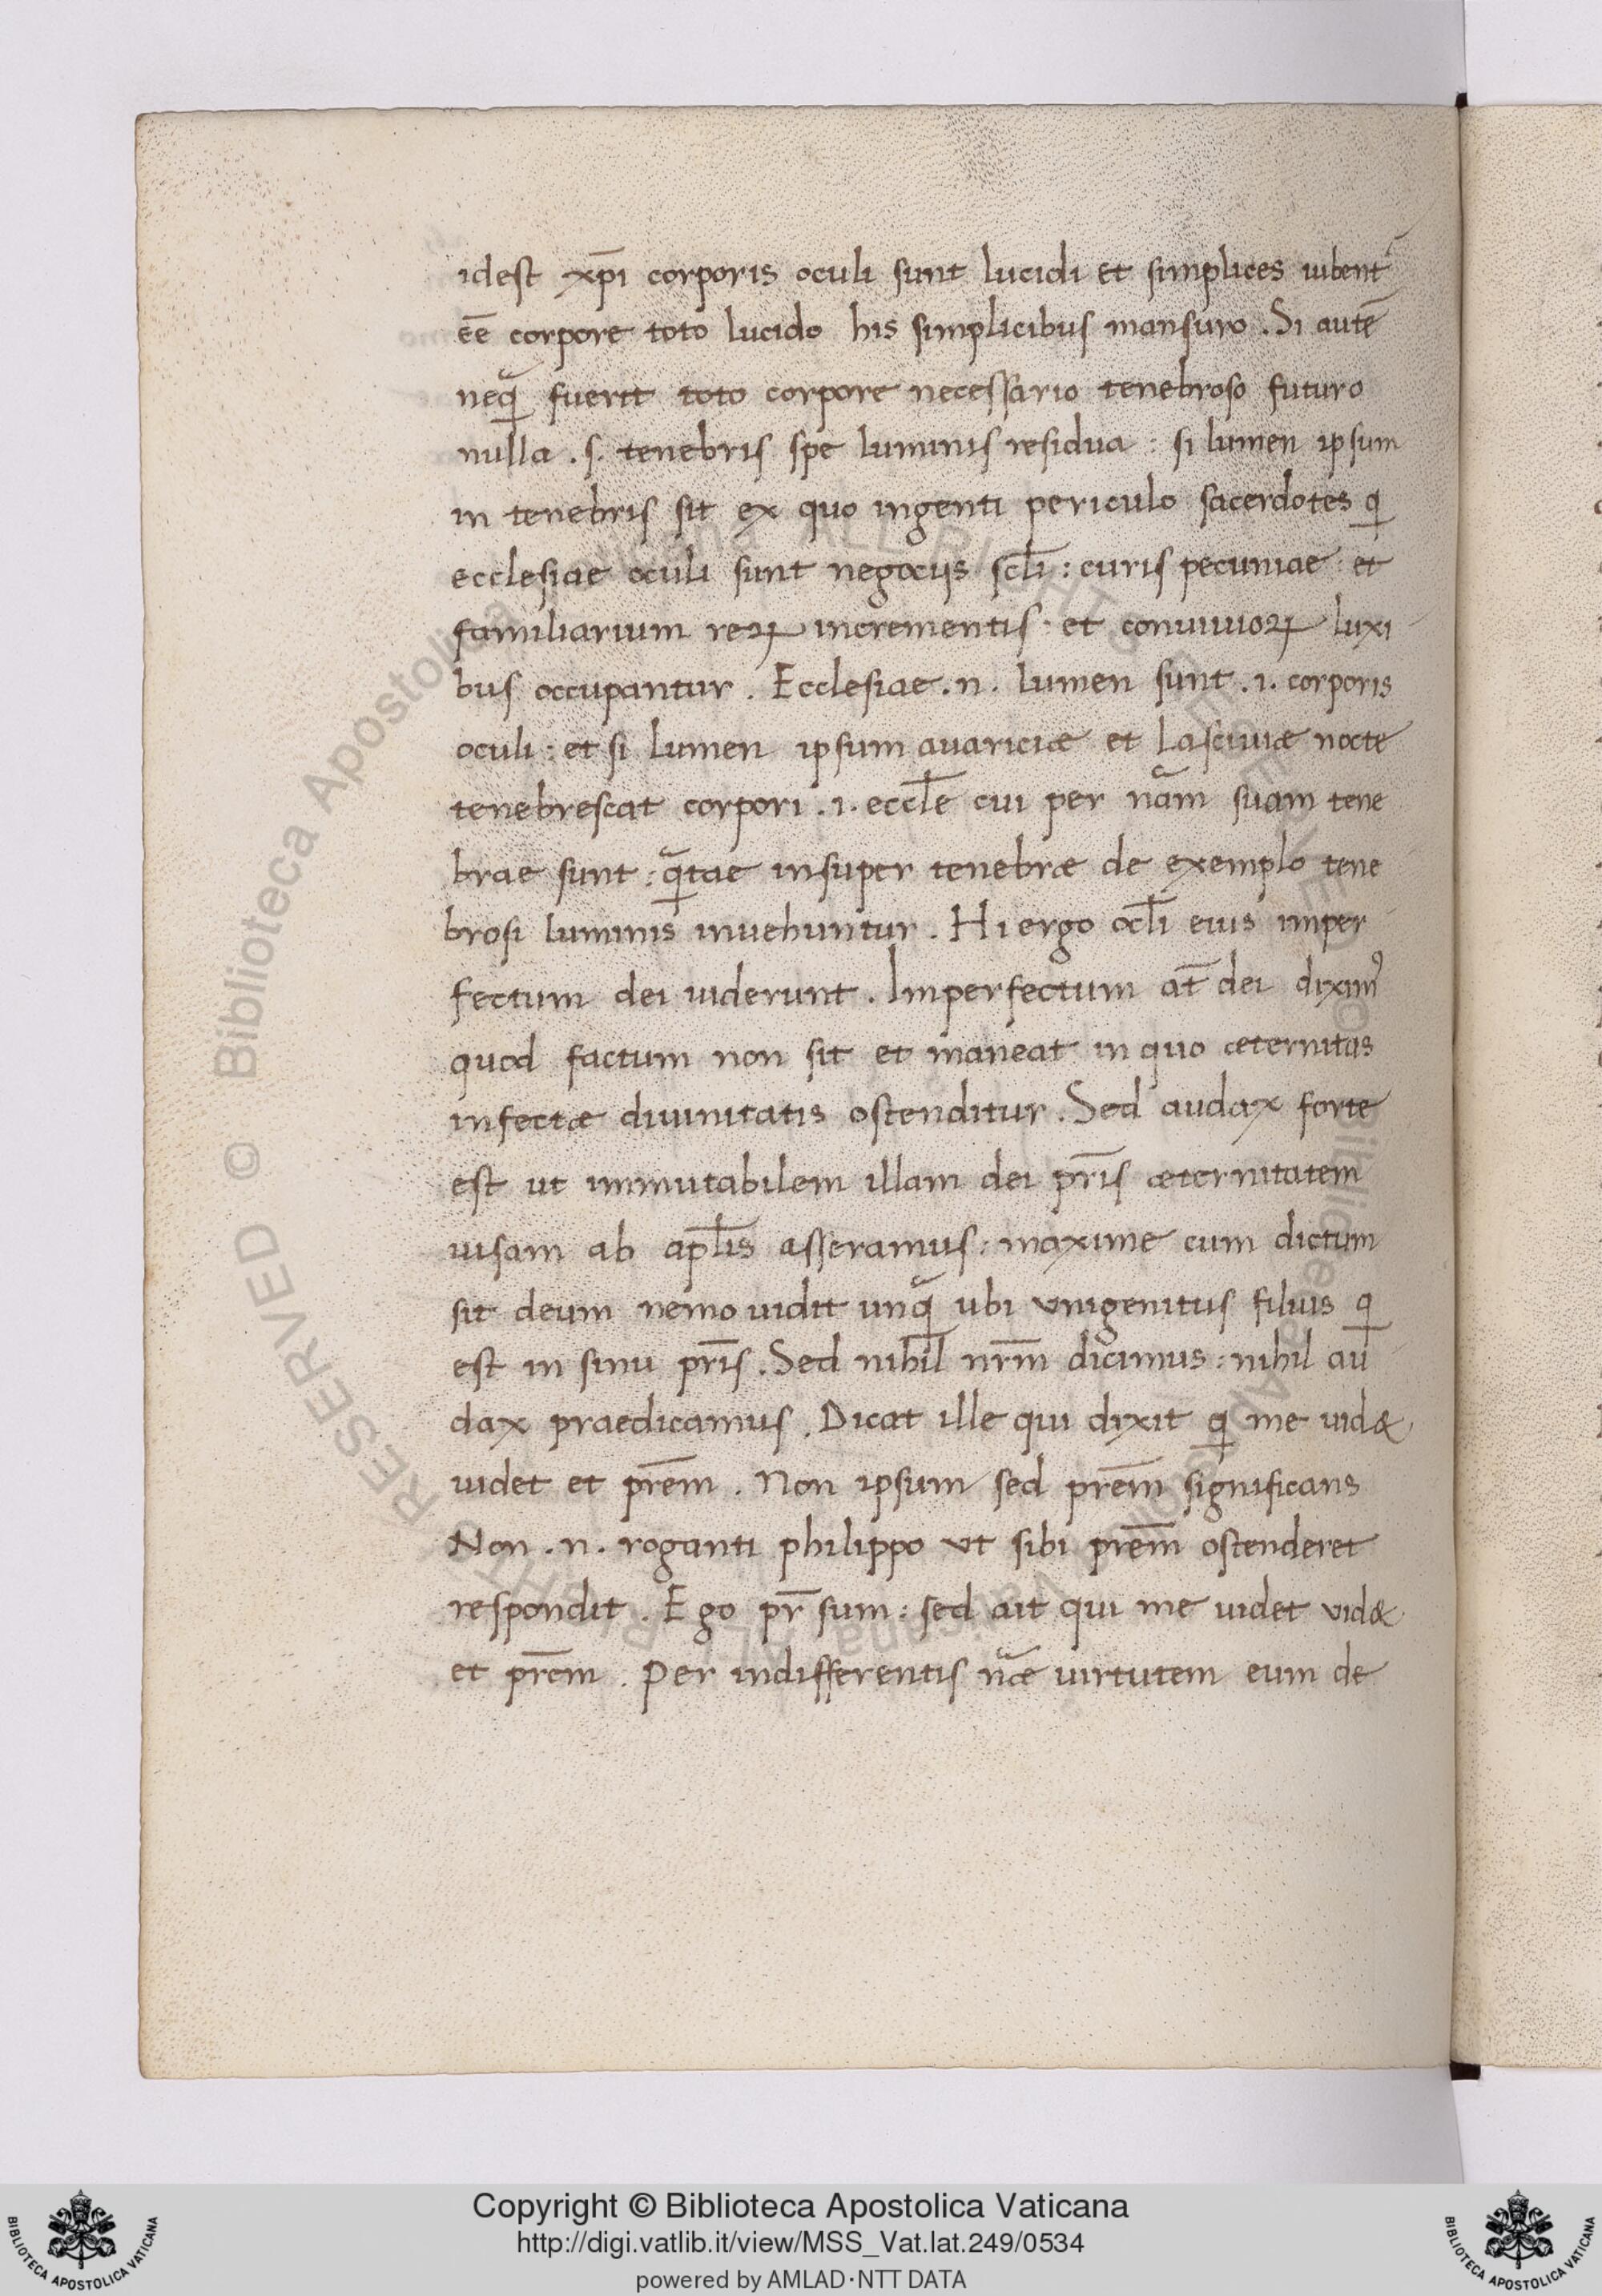 idest xp̄i corporis oculi sunt lucidi et simplices iubent᷑
eē corpore toto lucido his simplicibus mansuro . Si autē
neq̃ fuerit toto corpore necessario tenebroso futuro
nulla . s . tenebris spe luminis residua : si lumen ipsum
in tenebris sit ex quo ingenti periculo sacerdotes q
ecclesiae oculi sunt negociis scl̄i : curis pecuniae : et
familiarium reꝝ incrementis : et conuiuioꝝ luxi
bus occupantur . Ecclesiae . n . lumen sunt . i . corporis
oculi : et si lumen ipsum auariciæ et lasciuiæ nocte
tenebrescat corpori . i . eccl̄e cui per nãm suam tene
brae sunt : q̃tae insuper tenebræ de exemplo tene
brosi luminis inuehuntur . Hi ergo ocl̄i eius imper
fectum dei uiderunt . Imperfectum at̄ dei dixim᾽
quod factum non sit et maneat in quo æternitas
infectæ diuinitatis ostenditur . Sed audax forte
est ut immutabilem illam dei pr̄is æternitatem
uisam ab apl̄is asseramus : maxime cum dictum
sit deum nemo uidit unq̃ ubi vnigenitus filius q
est in sinu pr̄is . Sed nihil nr̄m dicimus : nihil au
dax praedicamus . Dicat ille qui dixit q me uid&
uidet et pr̄em . Non ipsum sed pr̄em significans
Non . n . roganti philippo vt sibi pr̄em ostenderet
respondit . Ego pr̄ sum : sed ait qui me uidet vid&
et pr̄em . Per indifferentis nãe uirtutem eum de
Copyright © Biblioteca Apostolica Vaticana
http://digi.vatlib.it/view/MSS_Vat.lat.249/0534
powered by AMLAD·NTT DATA
BIBLIOTECA APOSTOLICA VATICANA
BIBLIOTECA APOSTOLICA VATICANA
© Biblioteca Apostolica Vaticana ALL RIGHTS RESERVED © Biblioteca Apostolica Vaticana ALL RIGHTS RESERVED